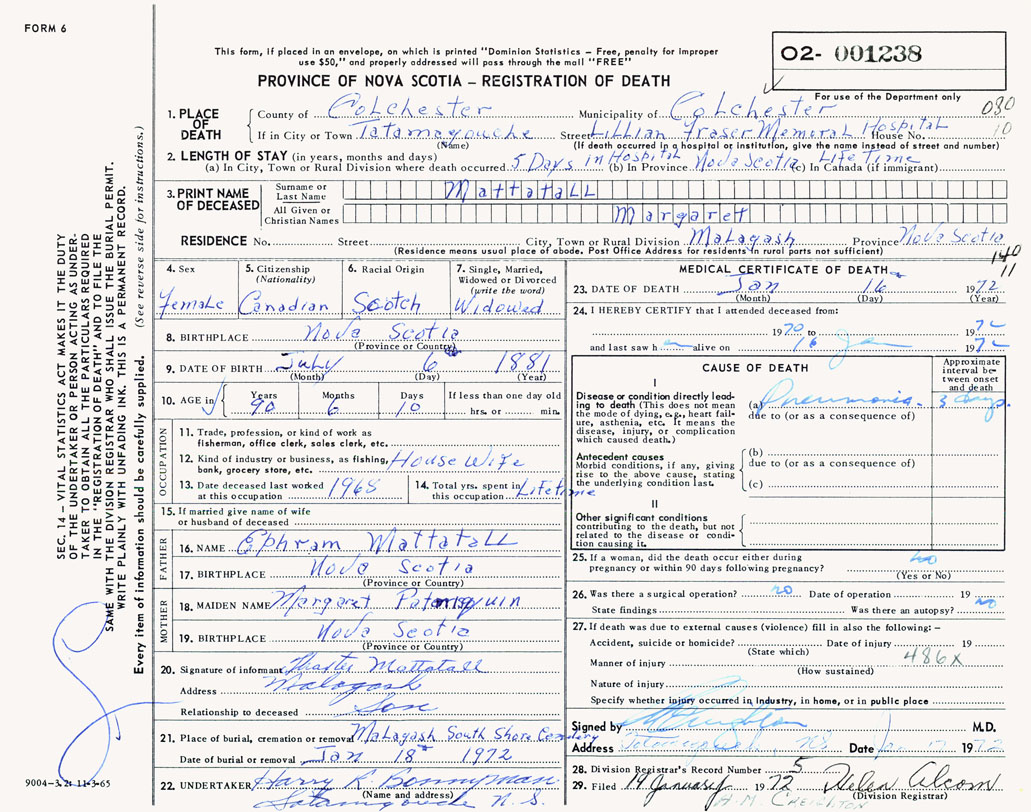 FORM 6
This form, if placed in an envelope, on which is printed "Dominion Statistics – Free, penalty for improper
use $50," and properly addressed will pass through the mail "FREE"
O2- 001238
PROVINCE OF NOVA SCOTIA – REGISTRATION OF DEATH
For use of the Department only
1. PLACE OF DEATH
County of Colchester Municipality of Colchester 080
If in City or Town Tatamagouche Street Lillian Fraser Memorial Hospital House No. 10
(Name) (If death occurred in a hospital or institution, give the name instead of street and number)
2. LENGTH OF STAY (in years, months and days)
(a) In City, Town or Rural Division where death occurred 5 Days in Hospital (b) In Province Nova Scotia (c) In Canada (if immigrant) Life Time
3. PRINT NAME OF DECEASED
Surname or Last Name Mattatall
All Given or Christian Names Margaret
RESIDENCE No. Street City, Town or Rural Division Malagash Province Nova Scotia
(Residence means usual place of abode. Post Office Address for residents in rural parts not sufficient)
140
11
4. Sex
Female
5. Citizenship
(Nationality)
Canadian
6. Racial Origin
Scotch
7. Single, Married,
Widowed or Divorced
(write the word)
Widowed
8. BIRTHPLACE Nova Scotia
(Province or Country)
9. DATE OF BIRTH July 6 1881
(Month) (Day) (Year)
10. AGE in Years Months Days If less than one day old
90 6 10 hrs. or min.
OCCUPATION
11. Trade, profession, or kind of work as
fisherman, office clerk, sales clerk, etc.
12. Kind of industry or business, as fishing,
bank, grocery store, etc. House Wife
13. Date deceased last worked
at this occupation 1968
14. Total yrs. spent in
this occupation Lifetime
15. If married give name of wife
or husband of deceased
FATHER
16. NAME Ephram Mattatall
17. BIRTHPLACE Nova Scotia
(Province or Country)
MOTHER
18. MAIDEN NAME Margaret
19. BIRTHPLACE Nova Scotia
(Province or Country)
20. Signature of informant Mattatall
Address Malagash
Relationship to deceased Son
21. Place of burial, cremation or removal Malagash South Shore Cemetery
Date of burial or removal Jan 18 1972
22. UNDERTAKER Harry R Bonnyman
(Name and address)
Tatamagouche N.S.
MEDICAL CERTIFICATE OF DEATH
23. DATE OF DEATH Jan 16 1972
(Month) (Day) (Year)
24. I HEREBY CERTIFY that I attended deceased from:
1970 to 1972
and last saw her alive on 16 Jan 1972
CAUSE OF DEATH
Approximate
interval be-
tween onset
and death
I
Disease or condition directly lead-
ing to death (This does not mean
the mode of dying, e.g., heart fail-
ure, asthenia, etc. It means the
disease, injury, or complication
which caused death.)
(a) Pneumonia. 3 days.
due to (or as a consequence of)
Antecedent causes
Morbid conditions, if any, giving
rise to the above cause, stating
the underlying condition last.
(b)
due to (or as a consequence of)
(c)
II
Other significant conditions
contributing to the death, but not
related to the disease or condi-
tion causing it.
25. If a woman, did the death occur either during
pregnancy or within 90 days following pregnancy? no
(Yes or No)
26. Was there a surgical operation? no Date of operation 19
State findings Was there an autopsy? no
27. If death was due to external causes (violence) fill in also the following: –
Accident, suicide or homicide? Date of injury 19
(State which)
486X
Manner of injury
(How sustained)
Nature of injury
Specify whether injury occurred in Industry, in home, or in public place
Signed by M.D.
Address Tatamagouche NS Date Jan 17 1972
28. Division Registrar's Record Number 5
29. Filed 19 January 1972 Helen Alcorn
(Division Registrar)
A.M. CREIGHTON
SEC. 14 – VITAL STATISTICS ACT MAKES IT THE DUTY
OF THE UNDERTAKER OR PERSON ACTING AS UNDER-
TAKER TO OBTAIN ALL THE PARTICULARS REQUIRED
IN THE "REGISTRATION OF DEATH" AND TO FILE THE
SAME WITH THE DIVISION REGISTRAR WHO SHALL ISSUE THE BURIAL PERMIT.
WRITE PLAINLY WITH UNFADING INK. THIS IS A PERMANENT RECORD.
Every item of information should be carefully supplied. (See reverse side for instructions.)
9004-3.21 11-3-65